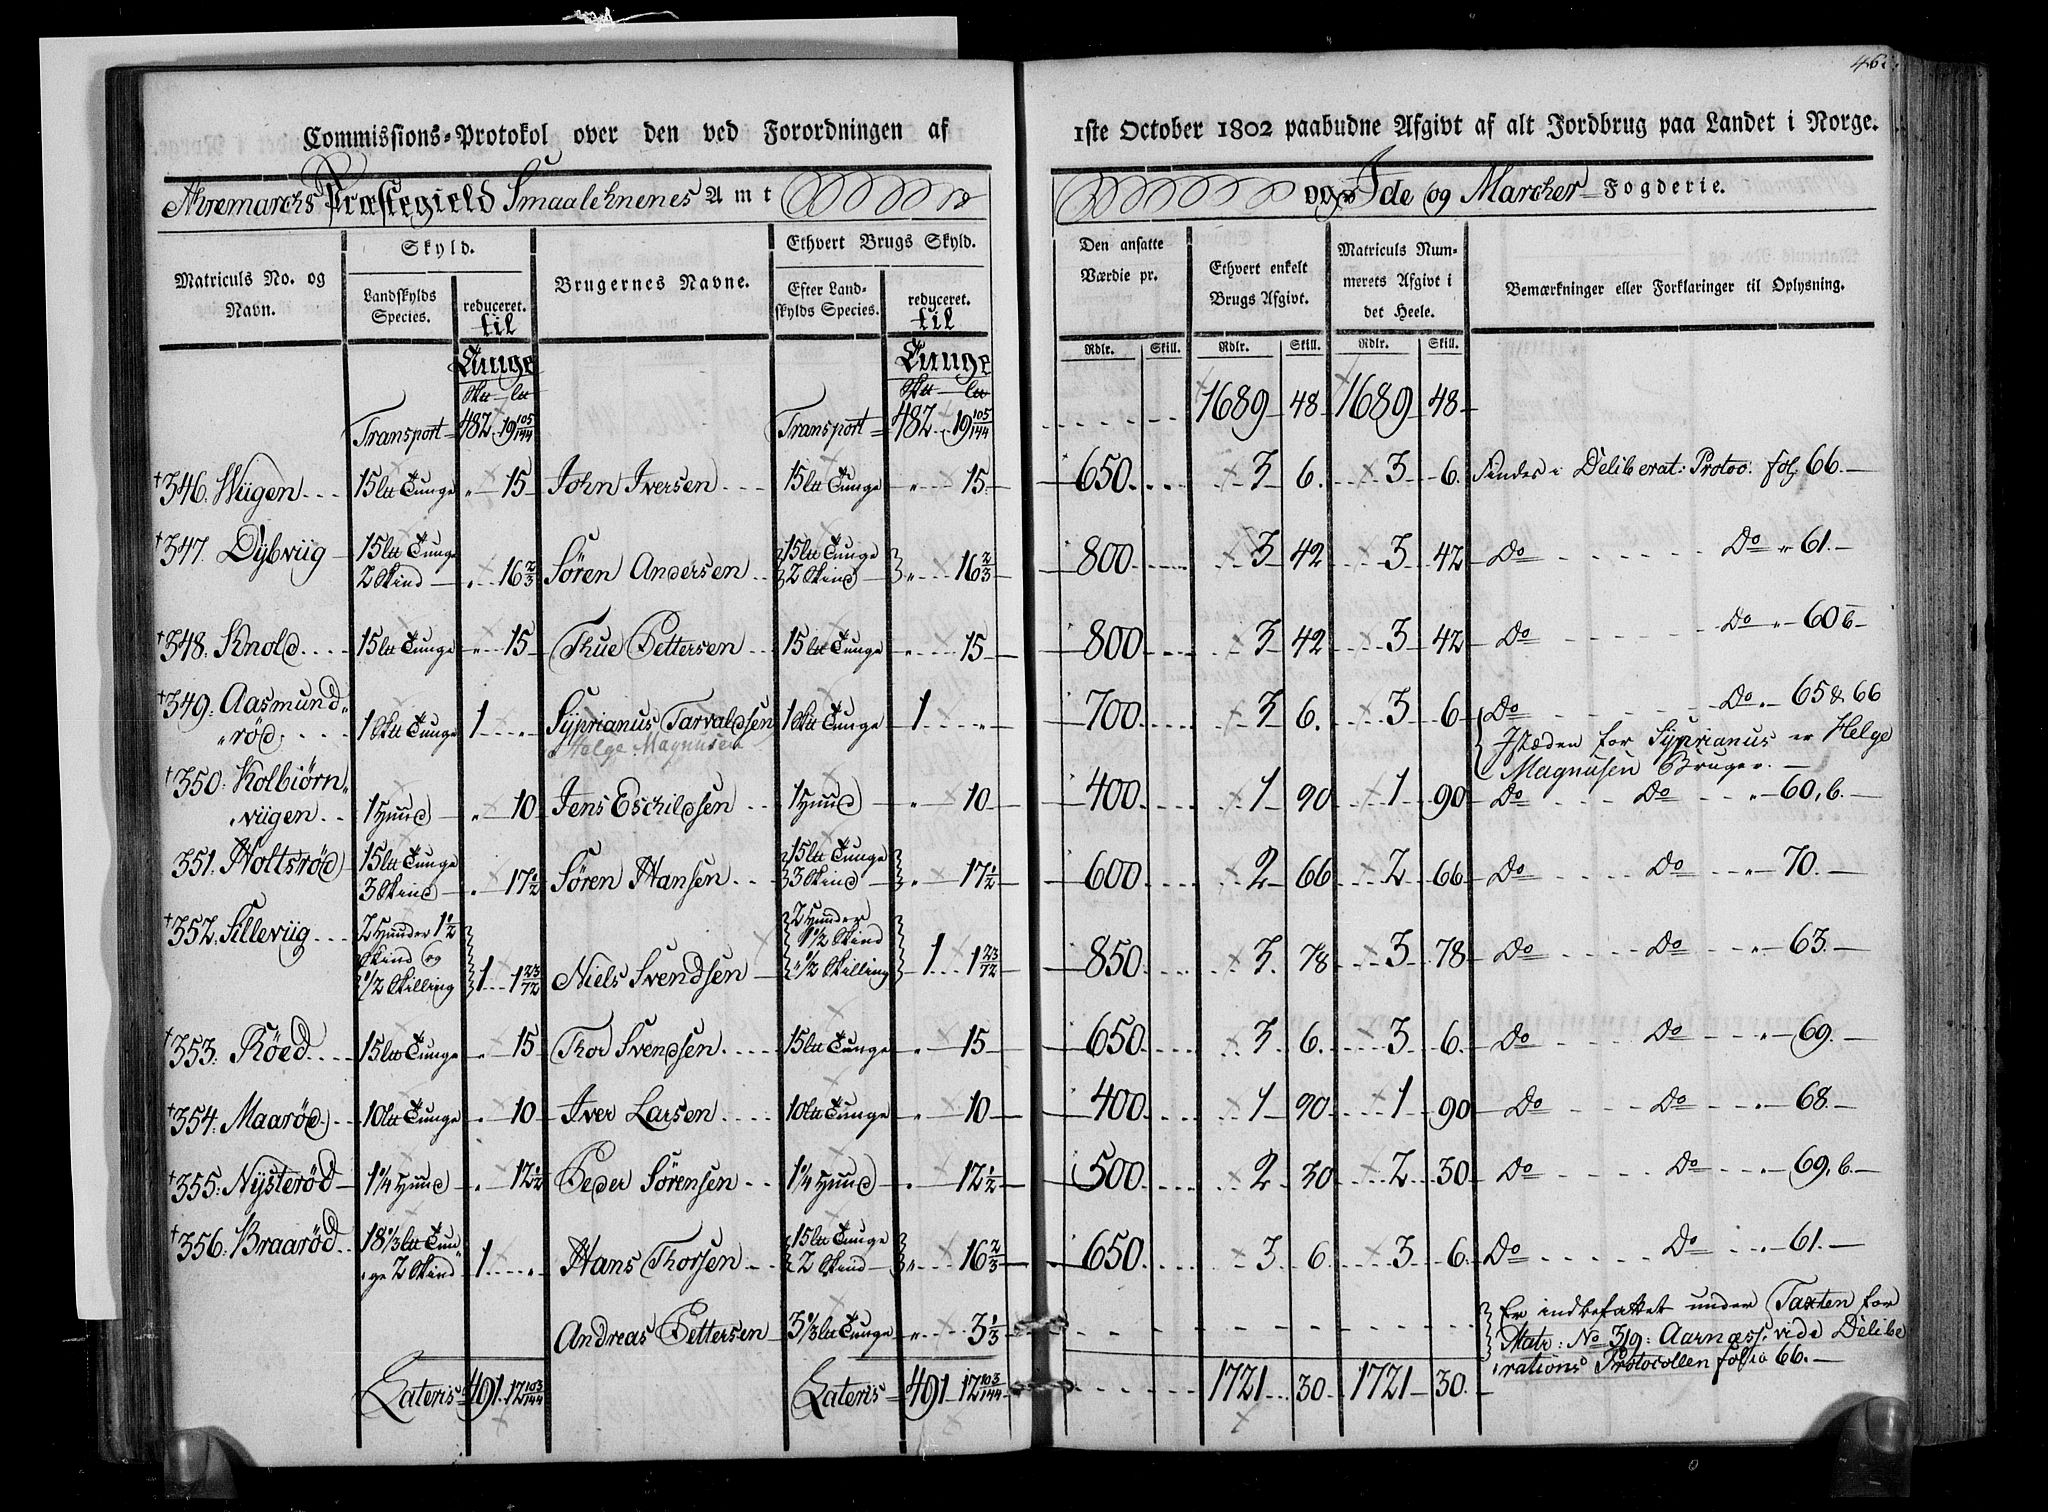 46.
Commissions-Protokol over den ved Forordningen af
1ste October 1802 paabudne Afgivt af alt Jordbrug paa Landet i Norge.
Ahremarchs Præstegield Smaalehnenes Amt
og Ide og Marcher Fogderie.
Matriculs No. og Navn. Skyld. Landskylds Species. reduceret. til Tunge Sktt ltt
Brugernes Navne. Ethvert Brugs Skyld. Efter Landskylds Species. reduceret. til Tunge Sktt ltt
Den ansatte Værdie pr. Rdlr. Skill. Ethvert enkelt Brugs Afgivt. Rdlr. Skill. Matriculs Nummerets Afgivt i det Heele. Rdlr. Skill. Bemærkninger eller Forklaringer til Oplysning.
Transport 482 19 105/144 Transport 482 19 105/144 1689 48 1689 48
346. Wiigen 15 ltt Tunge " 15 John Iversen 15 ltt Tunge " 15 650 3 6 3 6 Findes i Deliberat: Protoc. fol: 66.
347. Dybviig 15 ltt Tunge 2 Skind " 16 2/3 Søren Andersen 15 ltt Tunge 2 Skind " 16 2/3 800 3 42 3 42 Do Do " 61.
348. Knold 15 ltt Tunge " 15 Thue Pettersen 15 ltt Tunge " 15 800 3 42 3 42 Do Do " 60 b
349. Aasmundrød 1 Sktt Tunge 1 " Syprianus Tarvaldsen 1 Sktt Tunge 1 " 700 3 6 3 6 Do Do " 65 & 66
Helge Magnusen
Istæden for Syprianus er Helge
Magnusen Bruger.
350. Kolbiørnviigen 1 Huud " 10 Jens Eschildsen 1 Huud " 10 400 1 90 1 90 Do Do " 60, b.
351. Holtsrød 15 ltt Tunge 3 Skind " 17 1/2 Søren Hansen 15 ltt Tunge 3 Skind " 17 1/2 600 2 66 2 66 Do Do " 70.
352. Silleviig 2 Huuder 1 1/2 Skind og 1/2 Skilling 1 1 23/72 Niels Svendsen 2 Huuder 1 1/2 Skind 1/2 Skilling 1 1 23/72 850 3 78 3 78 Do Do " 63.
353. Röed 15 ltt Tunge " 15 Thor Svendsen 15 ltt Tunge " 15 650 3 6 3 6 Do Do " 69.
354. Maarød 10 ltt Tunge " 10 Iver Larsen 10 ltt Tunge " 10 400 1 90 1 90 Do Do " 68.
355. Nysterød 1 1/4 Huud " 12 1/2 Peder Sørensen 1 1/4 Huud " 12 1/2 500 2 30 2 30 Do Do " 69, b.
356. Braarød 18 1/3 ltt Tunge 2 Skind 1 " Hans Thorsen 15 ltt Tunge 2 Skind " 16 2/3 650 3 6 3 6 Do Do " 61.
Andreas Pettersen 3 1/3 ltt Tunge " 3 1/3 Er indbefattet under Taxten for
Matr: No 319: Aarnæss. vide Delibe
rations Protocollen folio 66.
Lateris 491 12 103/144 Lateris 491 12 103/144 1721 30 1721 30